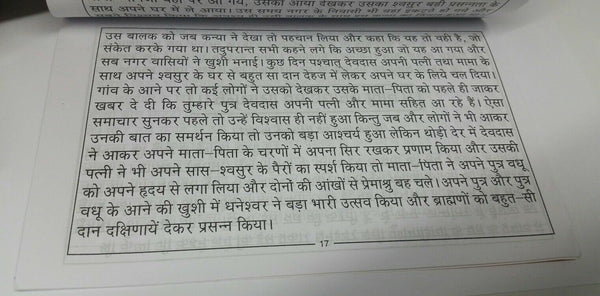 साथ अपने घर में ले आया। उस समय नगर के निवासी भी वहां इकट्ठे हो गये और
उस बालक को जब कन्या ने देखा तो पहचान लिया और कहा कि यह तो वही है, जो
संकेत करके गया था। तदुपरान्त सभी कहने लगे कि अच्छा हुआ जो यह आ गया और
सब नगर वासियों ने खुशी भनाई। कुछ दिन पश्चात् देवदास अपनी पत्नी तथा मामा के
साथ अपने श्वसुर के घर से बहुत सा दान देहज में लेकर अपने घर के लिये चल दिया।
गांव के आने पर तो कई लोगों ने उसको देखकर उसके माता-पिता को पहले ही जाकर
खबर दे दी कि तुम्हारे पुत्र देवदास अपनी पत्नी और मामा सहित आ रहे हैं। ऐसा
समाचार सुनकर पहले तो उन्हें विश्वास ही नहीं हुआ किन्तु जब और लोगों ने भी आकर
उनकी बात का समर्थन किया तो उनको बड़ा आश्चर्य हुआ लेकिन थोड़ी देर में देवदास
ने आकर अपने माता-पिता के चरणों में अपना सिर रखकर प्रणाम किया और उसकी
पत्नी ने भी अपने सास-श्वसुर के पैरों का स्पर्श किया तो माता-पिता ने अपने पुत्र वधू
को अपने हृदय से लगा लिया और दोनों की आंखों से प्रेमाश्रु बह चले। अपने पुत्र और पुत्र
वधू के आने की खुशी में धनेश्वर ने बड़ा भारी उत्सव किया और ब्राह्मणों को बहुत-सी
दान दक्षिणायें देकर प्रसन्न किया।
17